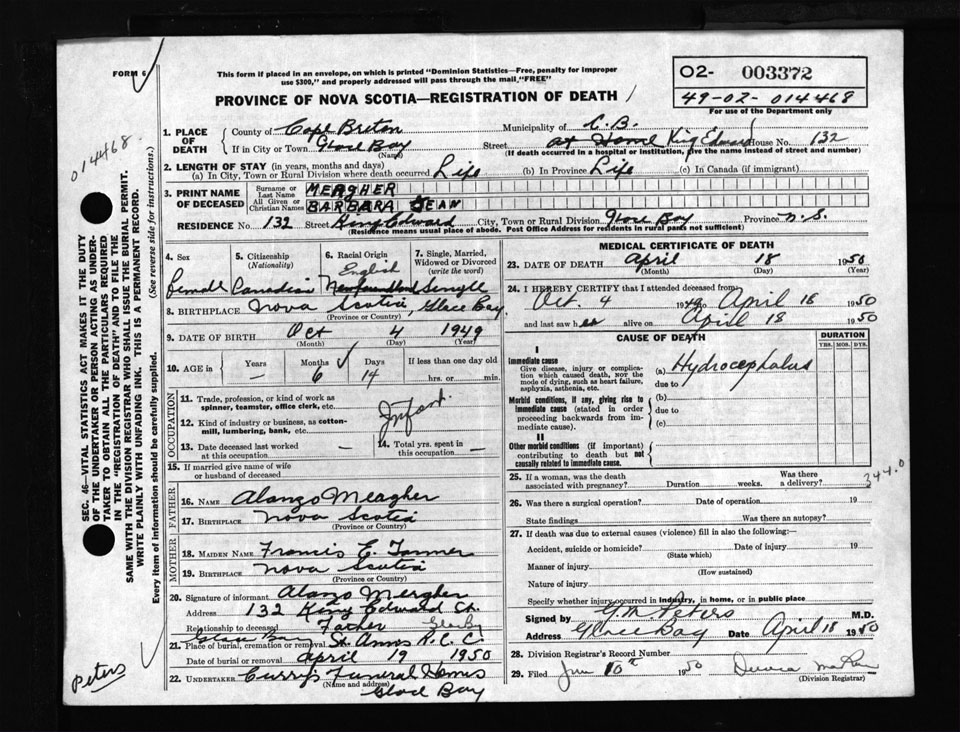 FORM 6
This form if placed in an envelope, on which is printed "Dominion Statistics—Free, penalty for improper
use $300," and properly addressed will pass through the mail, "FREE"
PROVINCE OF NOVA SCOTIA—REGISTRATION OF DEATH
02- 003372
49-02-014468
For use of the Department only
014468
SEC. 46—VITAL STATISTICS ACT MAKES IT THE DUTY
OF THE UNDERTAKER OR PERSON ACTING AS UNDER-
TAKER TO OBTAIN ALL THE PARTICULARS REQUIRED
IN THE "REGISTRATION OF DEATH" AND TO FILE THE
SAME WITH THE DIVISION REGISTRAR WHO SHALL ISSUE THE BURIAL PERMIT.
WRITE PLAINLY WITH UNFADING INK. THIS IS A PERMANENT RECORD.
Every item of information should be carefully supplied. (See reverse side for instructions.)
1. PLACE OF DEATH
County of Cape Breton Municipality of C.B.
If in City or Town Glace Bay (Name) Street at Home King Edward House No. 132
(If death occurred in a hospital or institution, give the name instead of street and number)
2. LENGTH OF STAY (in years, months and days)
(a) In City, Town or Rural Division where death occurred Life (b) In Province Life (c) In Canada (if immigrant)
3. PRINT NAME OF DECEASED
Surname or Last Name MEAGHER
All Given or Christian Names BARBARA JEAN
RESIDENCE No. 132 Street King Edward City, Town or Rural Division Glace Bay Province N.S.
(Residence means usual place of abode. Post Office Address for residents in rural parts not sufficient)
4. Sex 5. Citizenship (Nationality) 6. Racial Origin 7. Single, Married, Widowed or Divorced (write the word)
English
female Canadian Newfoundland Single
8. BIRTHPLACE Nova Scotia, Glace Bay
(Province or Country)
9. DATE OF BIRTH Oct 4 1949
(Month) (Day) (Year)
10. AGE in Years Months Days If less than one day old
— 6 14 hrs. or min.
OCCUPATION
11. Trade, profession, or kind of work as
spinner, teamster, office clerk, etc.
Infant
12. Kind of industry or business, as cotton-
mill, lumbering, bank, etc.
13. Date deceased last worked at this occupation —
14. Total yrs. spent in this occupation —
15. If married give name of wife
or husband of deceased
FATHER
16. NAME Alonzo Meagher
17. BIRTHPLACE Nova Scotia
(Province or Country)
MOTHER
18. MAIDEN NAME Francis E. Tanner
19. BIRTHPLACE Nova Scotia
(Province or Country)
20. Signature of informant Alonzo Meagher
Address 132 King Edward St.
Relationship to deceased Father
Glace Bay
21. Place of burial, cremation or removal St. Anns R.C.C.
Date of burial or removal April 19 1950
22. UNDERTAKER Curry's Funeral Homes
(Name and address)
Glace Bay
Peters
MEDICAL CERTIFICATE OF DEATH
23. DATE OF DEATH April 18 1950
(Month) (Day) (Year)
24. I HEREBY CERTIFY that I attended deceased from
Oct. 4 1949 to April 18 1950
and last saw her alive on April 18 1950
CAUSE OF DEATH
DURATION
YRS. MOS. DYS.
I
Immediate cause
Give disease, injury or complica-
tion which caused death, not the
mode of dying, such as heart failure,
asphyxia, asthenia, etc.
(a) Hydrocephalus
due to
Morbid conditions, if any, giving rise to
immediate cause (stated in order
proceeding backwards from im-
mediate cause).
(b)
due to
(c)
II
Other morbid conditions (if important)
contributing to death but not
causally related to immediate cause.
344.0
25. If a woman, was the death
associated with pregnancy? Duration weeks. Was there a delivery?
26. Was there a surgical operation? Date of operation 19
State findings Was there an autopsy?
27. If death was due to external causes (violence) fill in also the following:—
Accident, suicide or homicide? Date of injury 19
(State which)
Manner of injury
(How sustained)
Nature of injury
Specify whether injury occurred in industry, in home, or in public place
Signed by G.M. Peters M.D.
Address Glace Bay Date April 18 1950
28. Division Registrar's Record Number
29. Filed June 10th 1950
(Division Registrar)